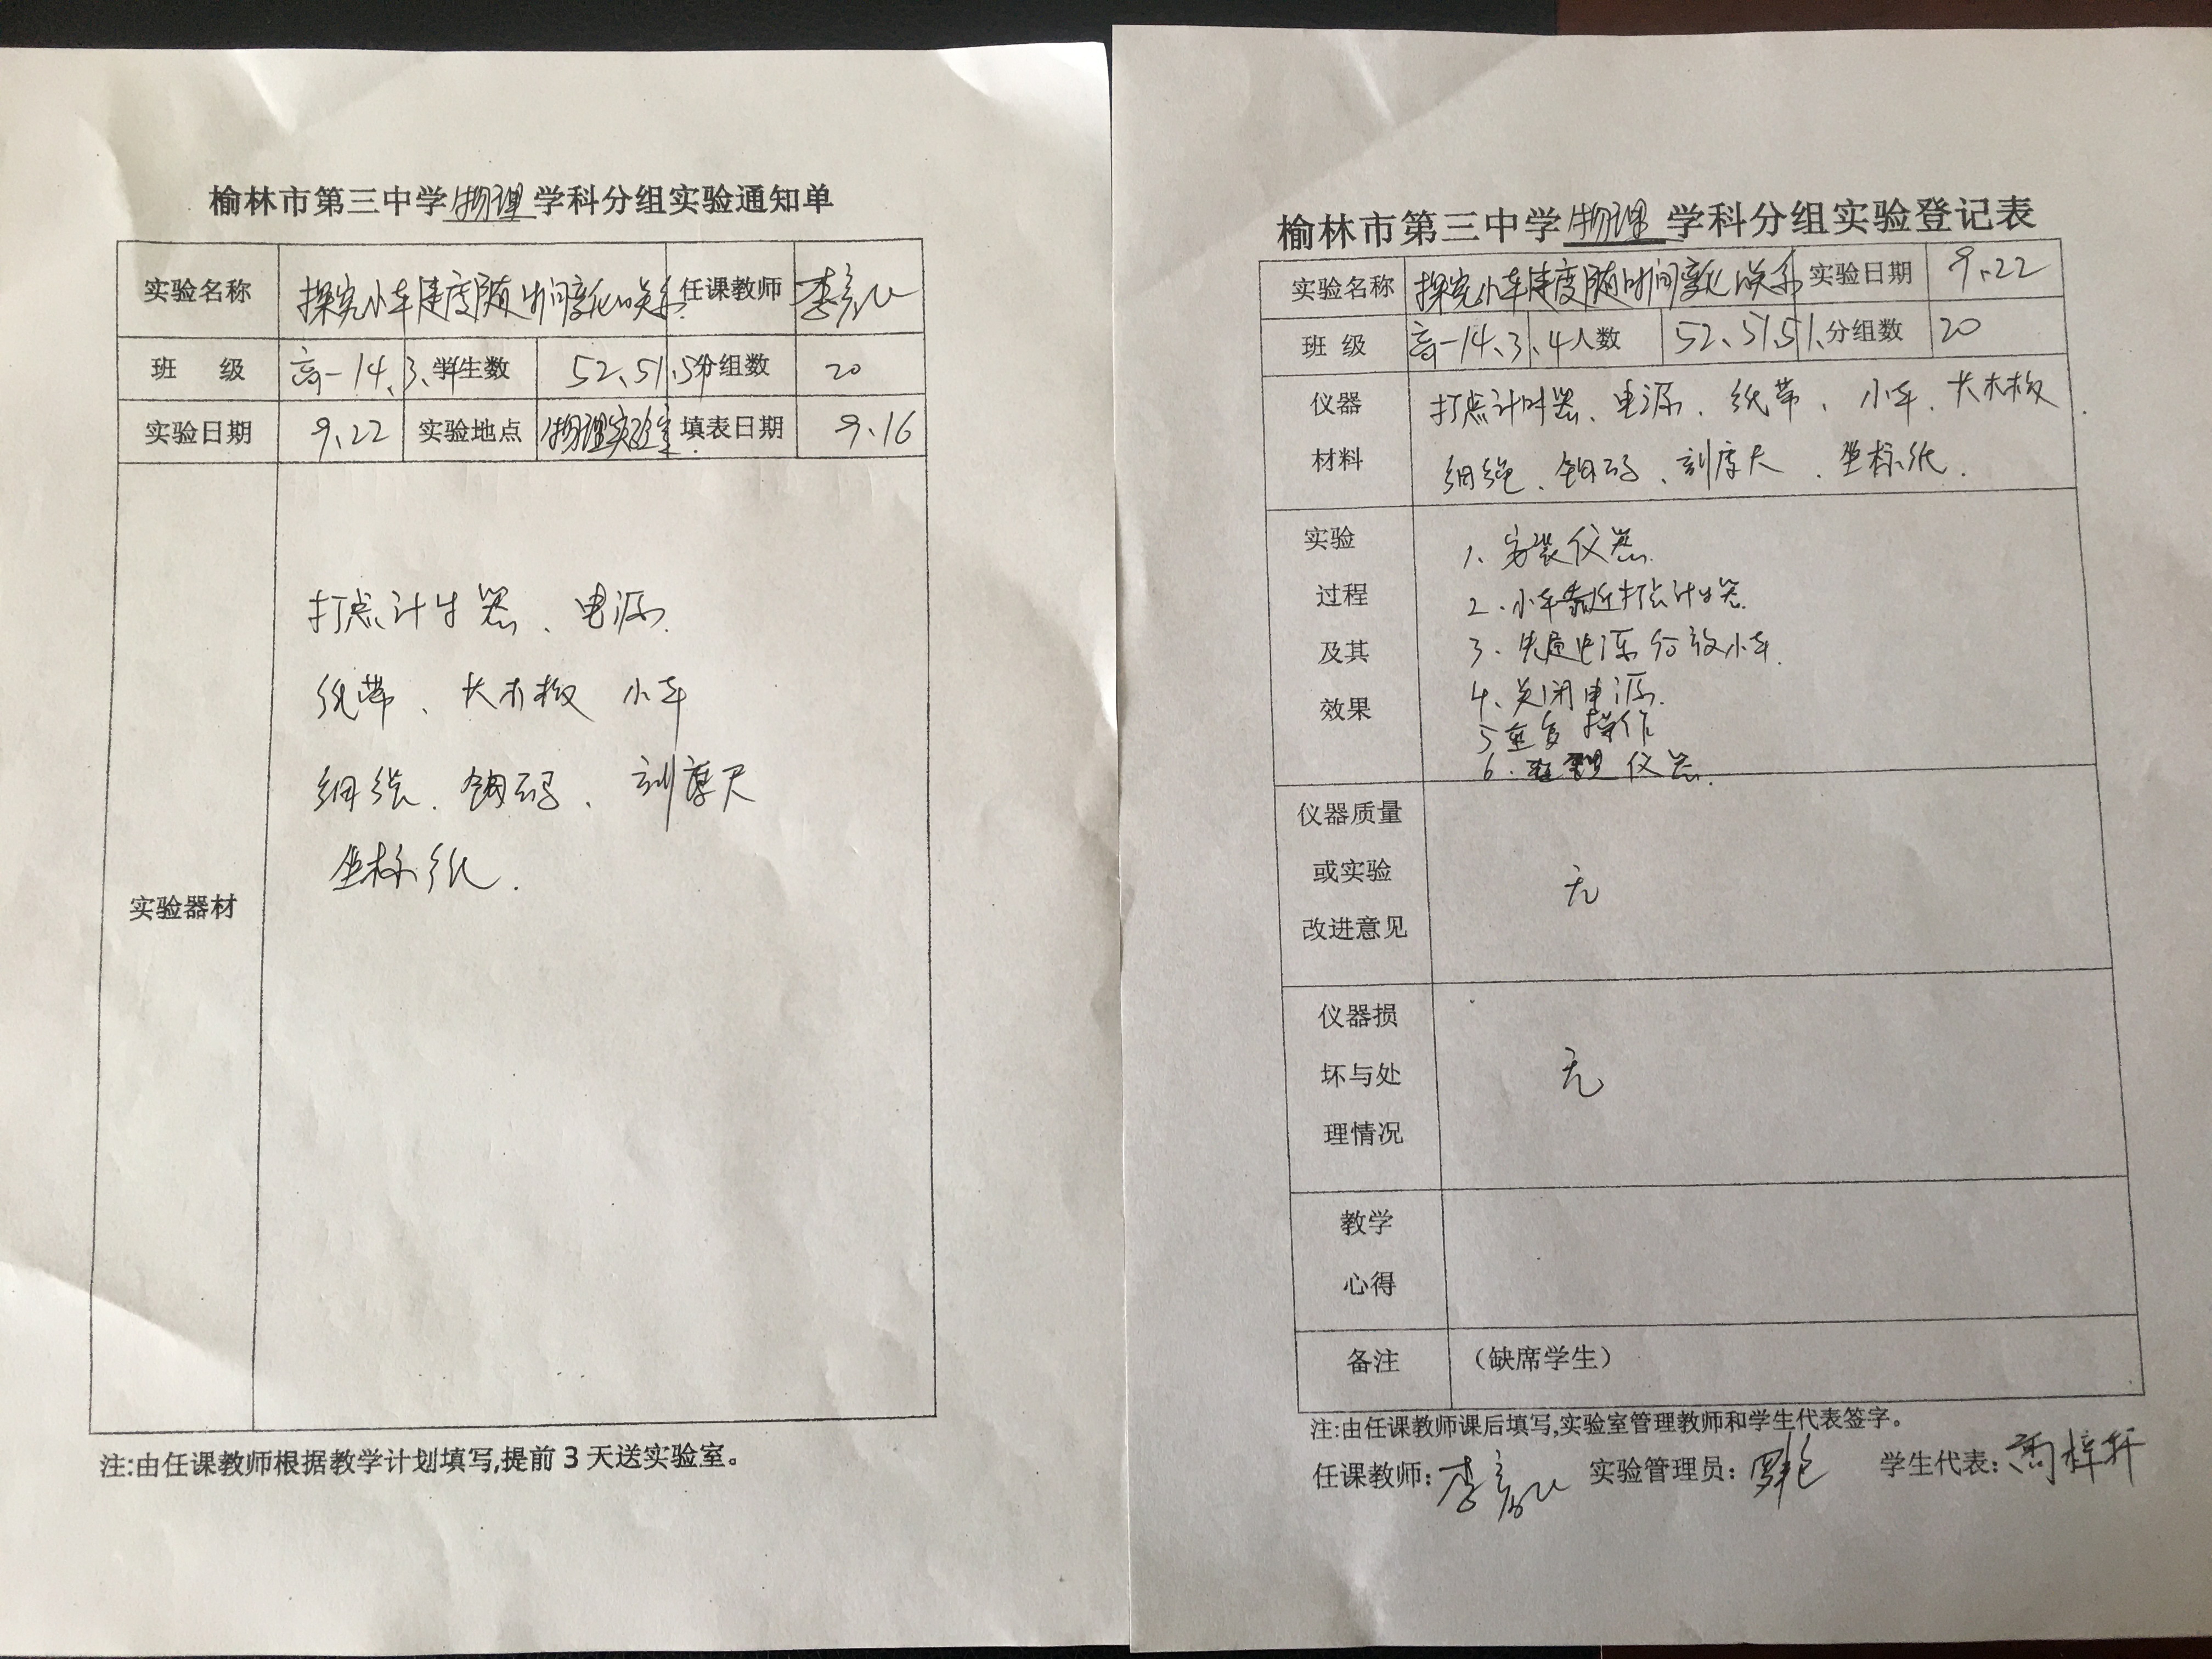 榆林市第三中学物理学科分组实验通知单
实验名称 探究小车速度随时间变化的关系 任课教师 李
班 级 高一14、3、4 学生数 52、51、51 分组数 20
实验日期 9.22 实验地点 物理实验室 填表日期 9.16
实验器材
打点计时器、电源
纸带、长木板 小车
细绳、钩码、刻度尺
坐标纸.
注:由任课教师根据教学计划填写,提前3天送实验室。
榆林市第三中学物理学科分组实验登记表
实验名称 探究小车速度随时间变化的关系 实验日期 9.22
班 级 高一14、3、4 人数 52、51、51、 分组数 20
仪器 打点计时器、电源、纸带、小车、长木板
材料 细绳、钩码、刻度尺、坐标纸.
实验 1、安装仪器.
过程 2、小车靠近打点计时器.
及其 3、先通电源后放小车.
效果 4、关闭电源.
5 重复操作
6、整理仪器.
仪器质量
或实验 无
改进意见
仪器损
坏与处 无
理情况
教学
心得
备注 （缺席学生）
注:由任课教师课后填写,实验室管理教师和学生代表签字。
任课教师: 李 实验管理员: 学生代表: 梓轩